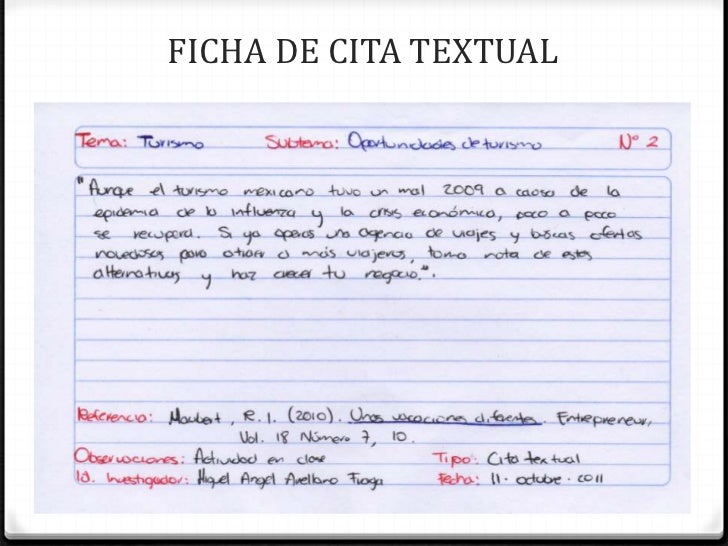 FICHA DE CITA TEXTUAL
Tema: Turismo Subtema: Oportunidades de turismo Nº 2
"Aunque el turismo mexicano tuvo un mal 2009 a causa de la
epidemia de la influenza y la crisis económica, poco a poco
se recupera. Si ya operas una agencia de viajes y buscas ofertas
novedosas para atraer a más viajeros, toma nota de estas
alternativas y haz crecer tu negocio.".
Referencia: Maubert, R. I. (2010). Unas vacaciones diferentes. Entrepreneur,
Vol. 18 Número 7, 10.
Observaciones: Actividad en clase Tipo: Cita textual
Id. Investigador: Miguel Angel Arellano Fecha: 11. octubre. 2011